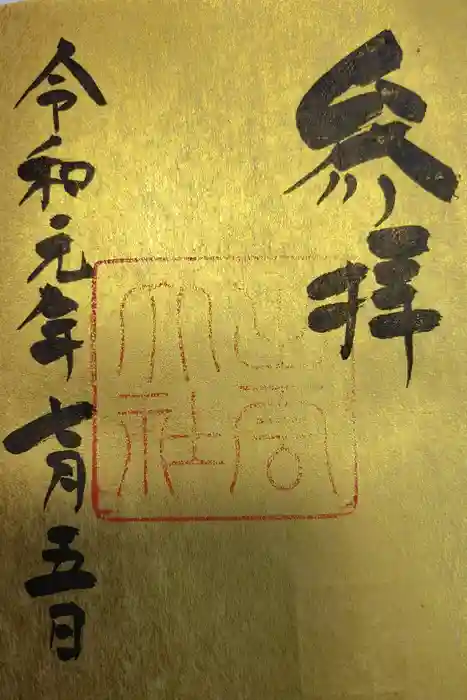 参拝
大社
令和元年七月五日